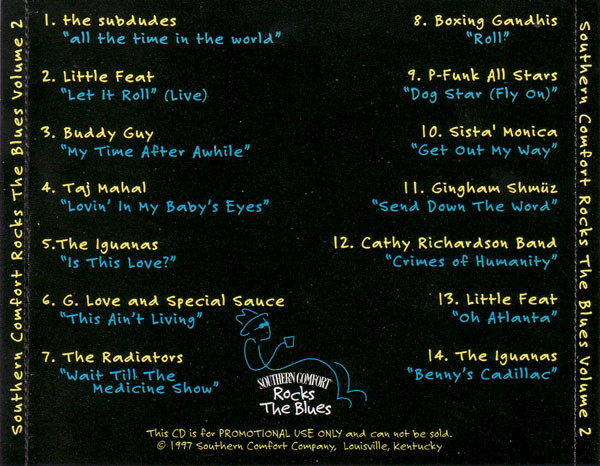 Southern Comfort Rocks The Blues Volume 2
1. the subdudes
"all the time in the world"
2. Little Feat
"Let It Roll" (Live)
3. Buddy Guy
"My Time After Awhile"
4. Taj Mahal
"Lovin' In My Baby's Eyes"
5.The Iguanas
"Is This Love?"
6. G. Love and Special Sauce
"This Ain't Living"
7. The Radiators
"Wait Till The
Medicine Show"
8. Boxing Gandhis
"Roll"
9. P-Funk All Stars
"Dog Star (Fly On)"
10. Sista' Monica
"Get Out My Way"
11. Gingham Shmüz
"Send Down The Word"
12. Cathy Richardson Band
"Crimes of Humanity"
13. Little Feat
"Oh Atlanta"
14. The Iguanas
"Benny's Cadillac"
SOUTHERN COMFORT
Rocks
The Blues
This CD is for PROMOTIONAL USE ONLY and can not be sold.
© 1997 Southern Comfort Company, Louisville, Kentucky
Southern Comfort Rocks The Blues Volume 2